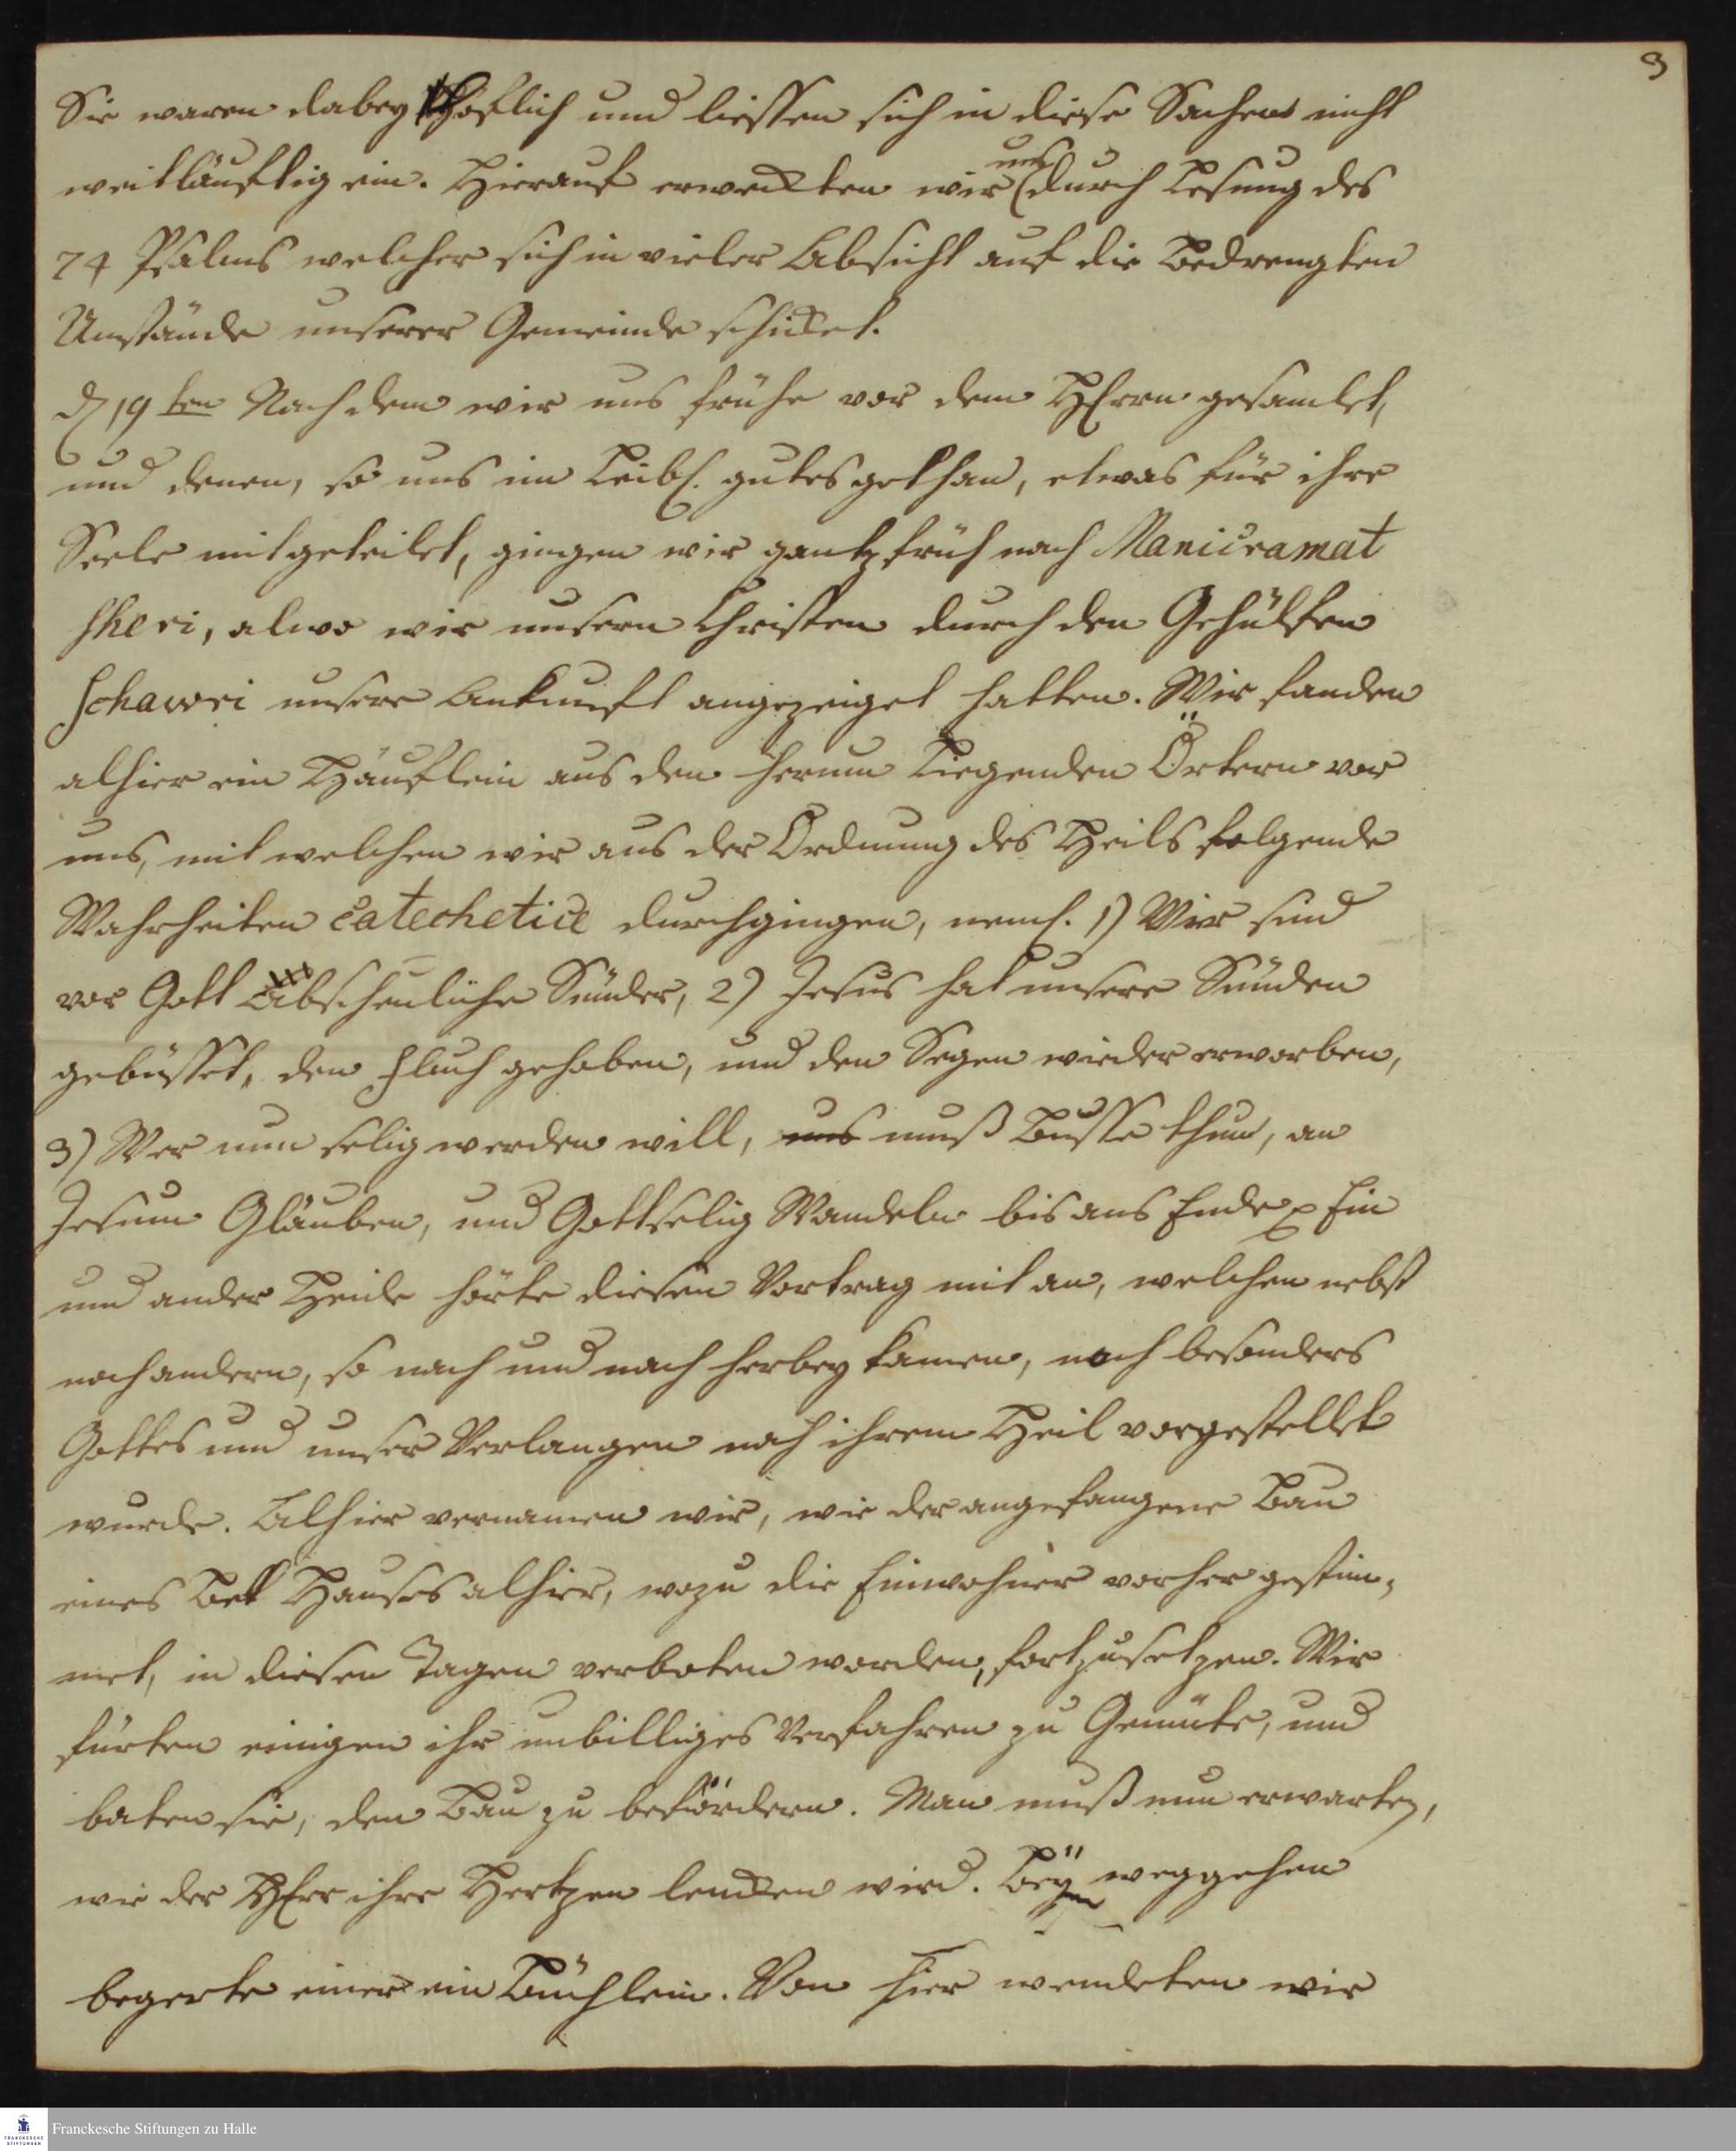 3
Sie waren dabey höflich und liessen sich in diese Sachen nicht
weitläuftig ein. Hierauf erweckten wir uns durch Lesung des
74 Psalms welcher sich in vieler Absicht auf die Bedrengten
Umstände unserer Gemeinde schicket.
d 19ten Nachdem wir uns frühe vor dem HErrn gesamlet,
und denen, so uns im Leibl. gutes gethan, etwas für ihre
Seele mitgeteilet, gingen wir gantz früh nach Manicramat
sheri, alwo wir unsern Christen durch den Gehülfen
Schawri unsere Ankunft angezeiget hatten. Wir fanden
alhier ein Häuflein aus den herum Liegenden Örtern vor
uns, mit welchen wir aus der Ordnung des Heils folgende
Wahrheiten Catechetice durchgingen, neml. 1) Wir sind
vor Gott Abscheuliche Sünder, 2) Jesus hat unsere Sünden
gebüsset, den Fluch gehoben, und den Segen wieder erworben,
3) Wer nun selig werden will, uns muß Busse thun, an
Jesum Gläuben, und Gottselig Wandeln bis ans Ende Ein
und ander Heide hörte diesen Vortrag mit an, welchen nebst
noch andern, so nach und nach herbey kamen, noch besonders
Gottes und unser Verlangen nach ihrem Heil vorgestellet
wurde. Alhier vernamen wir, wie der angefangene Bau
eines Bet Hauses alhier, wozu die Einwohner vorher gestim¬
met, in diesen Tagen verboten worden, fortzusetzen. Wir
fürten einigen ihr unbilliges Verfahren zu Gemüte, und
baten sie, den Bau zu befördern. Man muß nun erwarten,
wie der HErr ihre Hertzen lencken wird. Beym weggehen
begerte einer ein Büchlein. Von hier wendeten wir
Franckesche Stiftungen zu Halle